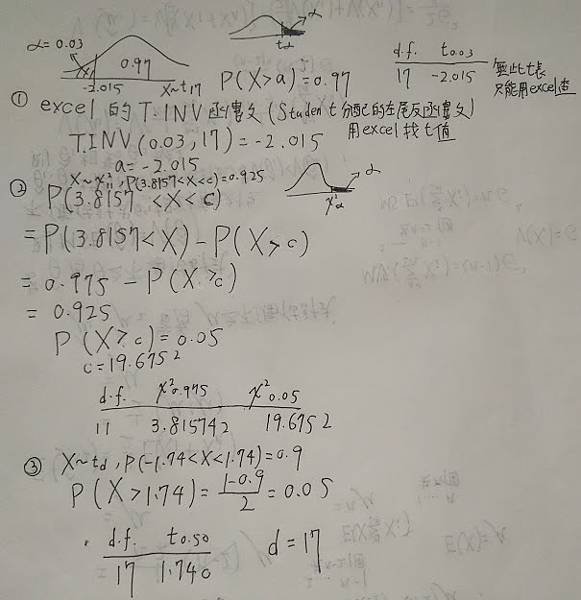 α=0.03
0.97
-2.015
X~t17
α
tα
P(X>a)=0.97
d.f. t0.03
17 -2.015
無此t表
只能用excel查
① excel 的 T.INV函數(Student分配的左尾反函數)
用excel找t值
T.INV(0.03,17)=-2.015
a=-2.015
② X~χ²11, P(3.8157<X<c)=0.925
α
χ²α
P(3.8157<X<c)
=P(3.8157<X)-P(X>c)
=0.975-P(X>c)
=0.925
P(X>c)=0.05
c=19.6752
d.f. χ²0.975 χ²0.05
11 3.815742 19.6752
③ X~td, P(-1.74<X<1.74)=0.9
P(X>1.74)=1-0.9/2=0.05
d.f. t0.50
17 1.740
d=17